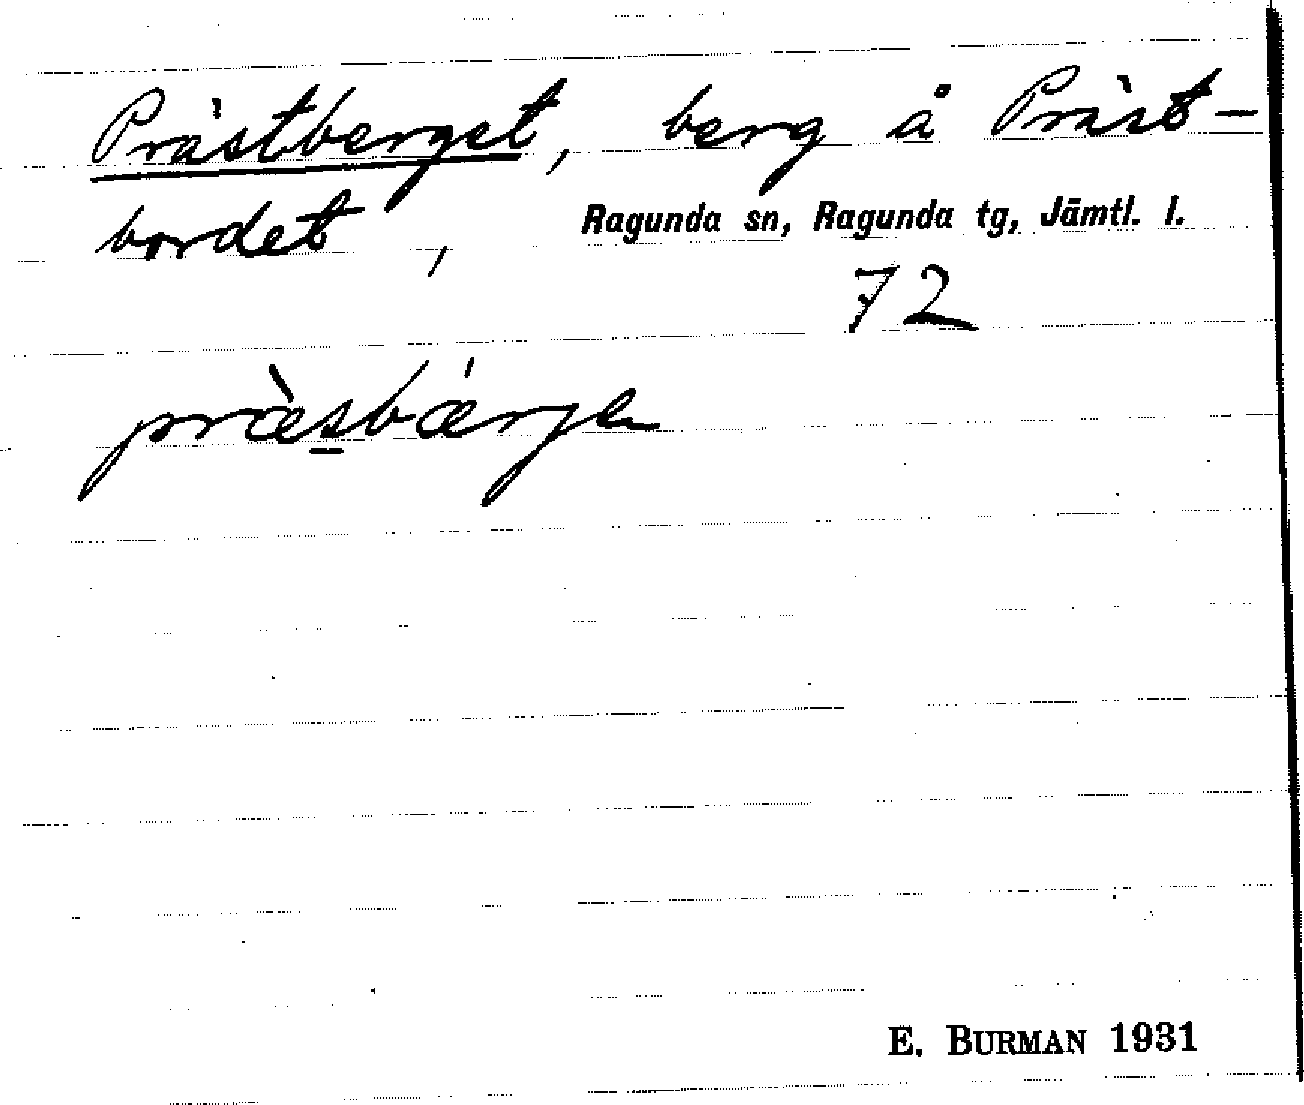 Prästberget, berg å Präst-
bordet, Ragunda sn, Ragunda tg, Jämtl. l.
72
præ̀sbǽrje
E. BURMAN 1931